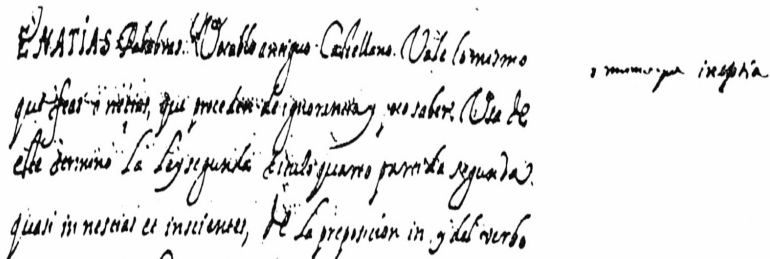 ENATIAS Palabras. Vocablo antiguo Castellano. Vale lo mismo
que feas o neçias, que proceden de ignorancia y no saber. Usa de
este termino la Ley segunda titulo quarto partida segunda.
quasi in nescias et inscientes, de la preposicion in y del verbo
ineptia